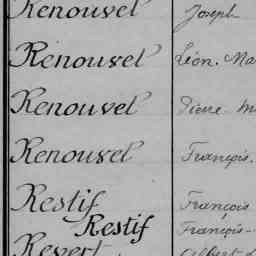 Renouvel Joseph
Renouvel Léon. Ma
Renouvel Pierre M
Renouvel François.
Restif François
Restif François
Revert Albert